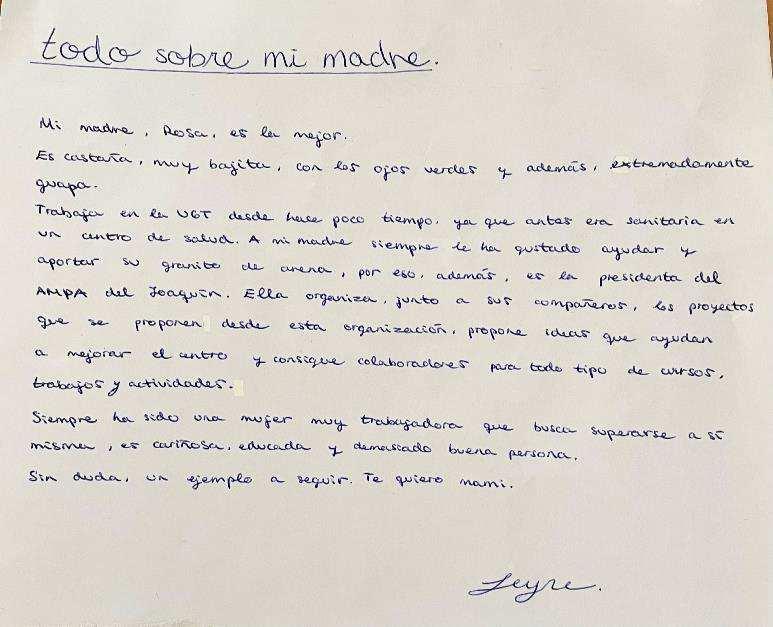 todo sobre mi madre.
Mi madre, Rosa, es la mejor.
Es castaña, muy bajita, con los ojos verdes y además, extremadamente
guapa.
Trabaja en la UGT desde hace poco tiempo, ya que antes era sanitaria en
un centro de salud. A mi madre siempre le ha gustado ayudar y
aportar su granito de arena, por eso, además, es la presidenta del
AMPA del Joaquín. Ella organiza, junto a sus compañeros, los proyectos
que se proponen desde esta organización, propone ideas que ayudan
a mejorar el centro y consigue colaboradores para todo tipo de cursos,
trabajos y actividades.
Siempre ha sido una mujer muy trabajadora que busca superarse a sí
misma, es cariñosa, educada y demasiado buena persona.
Sin duda, un ejemplo a seguir. Te quiero mami.
Leyre.